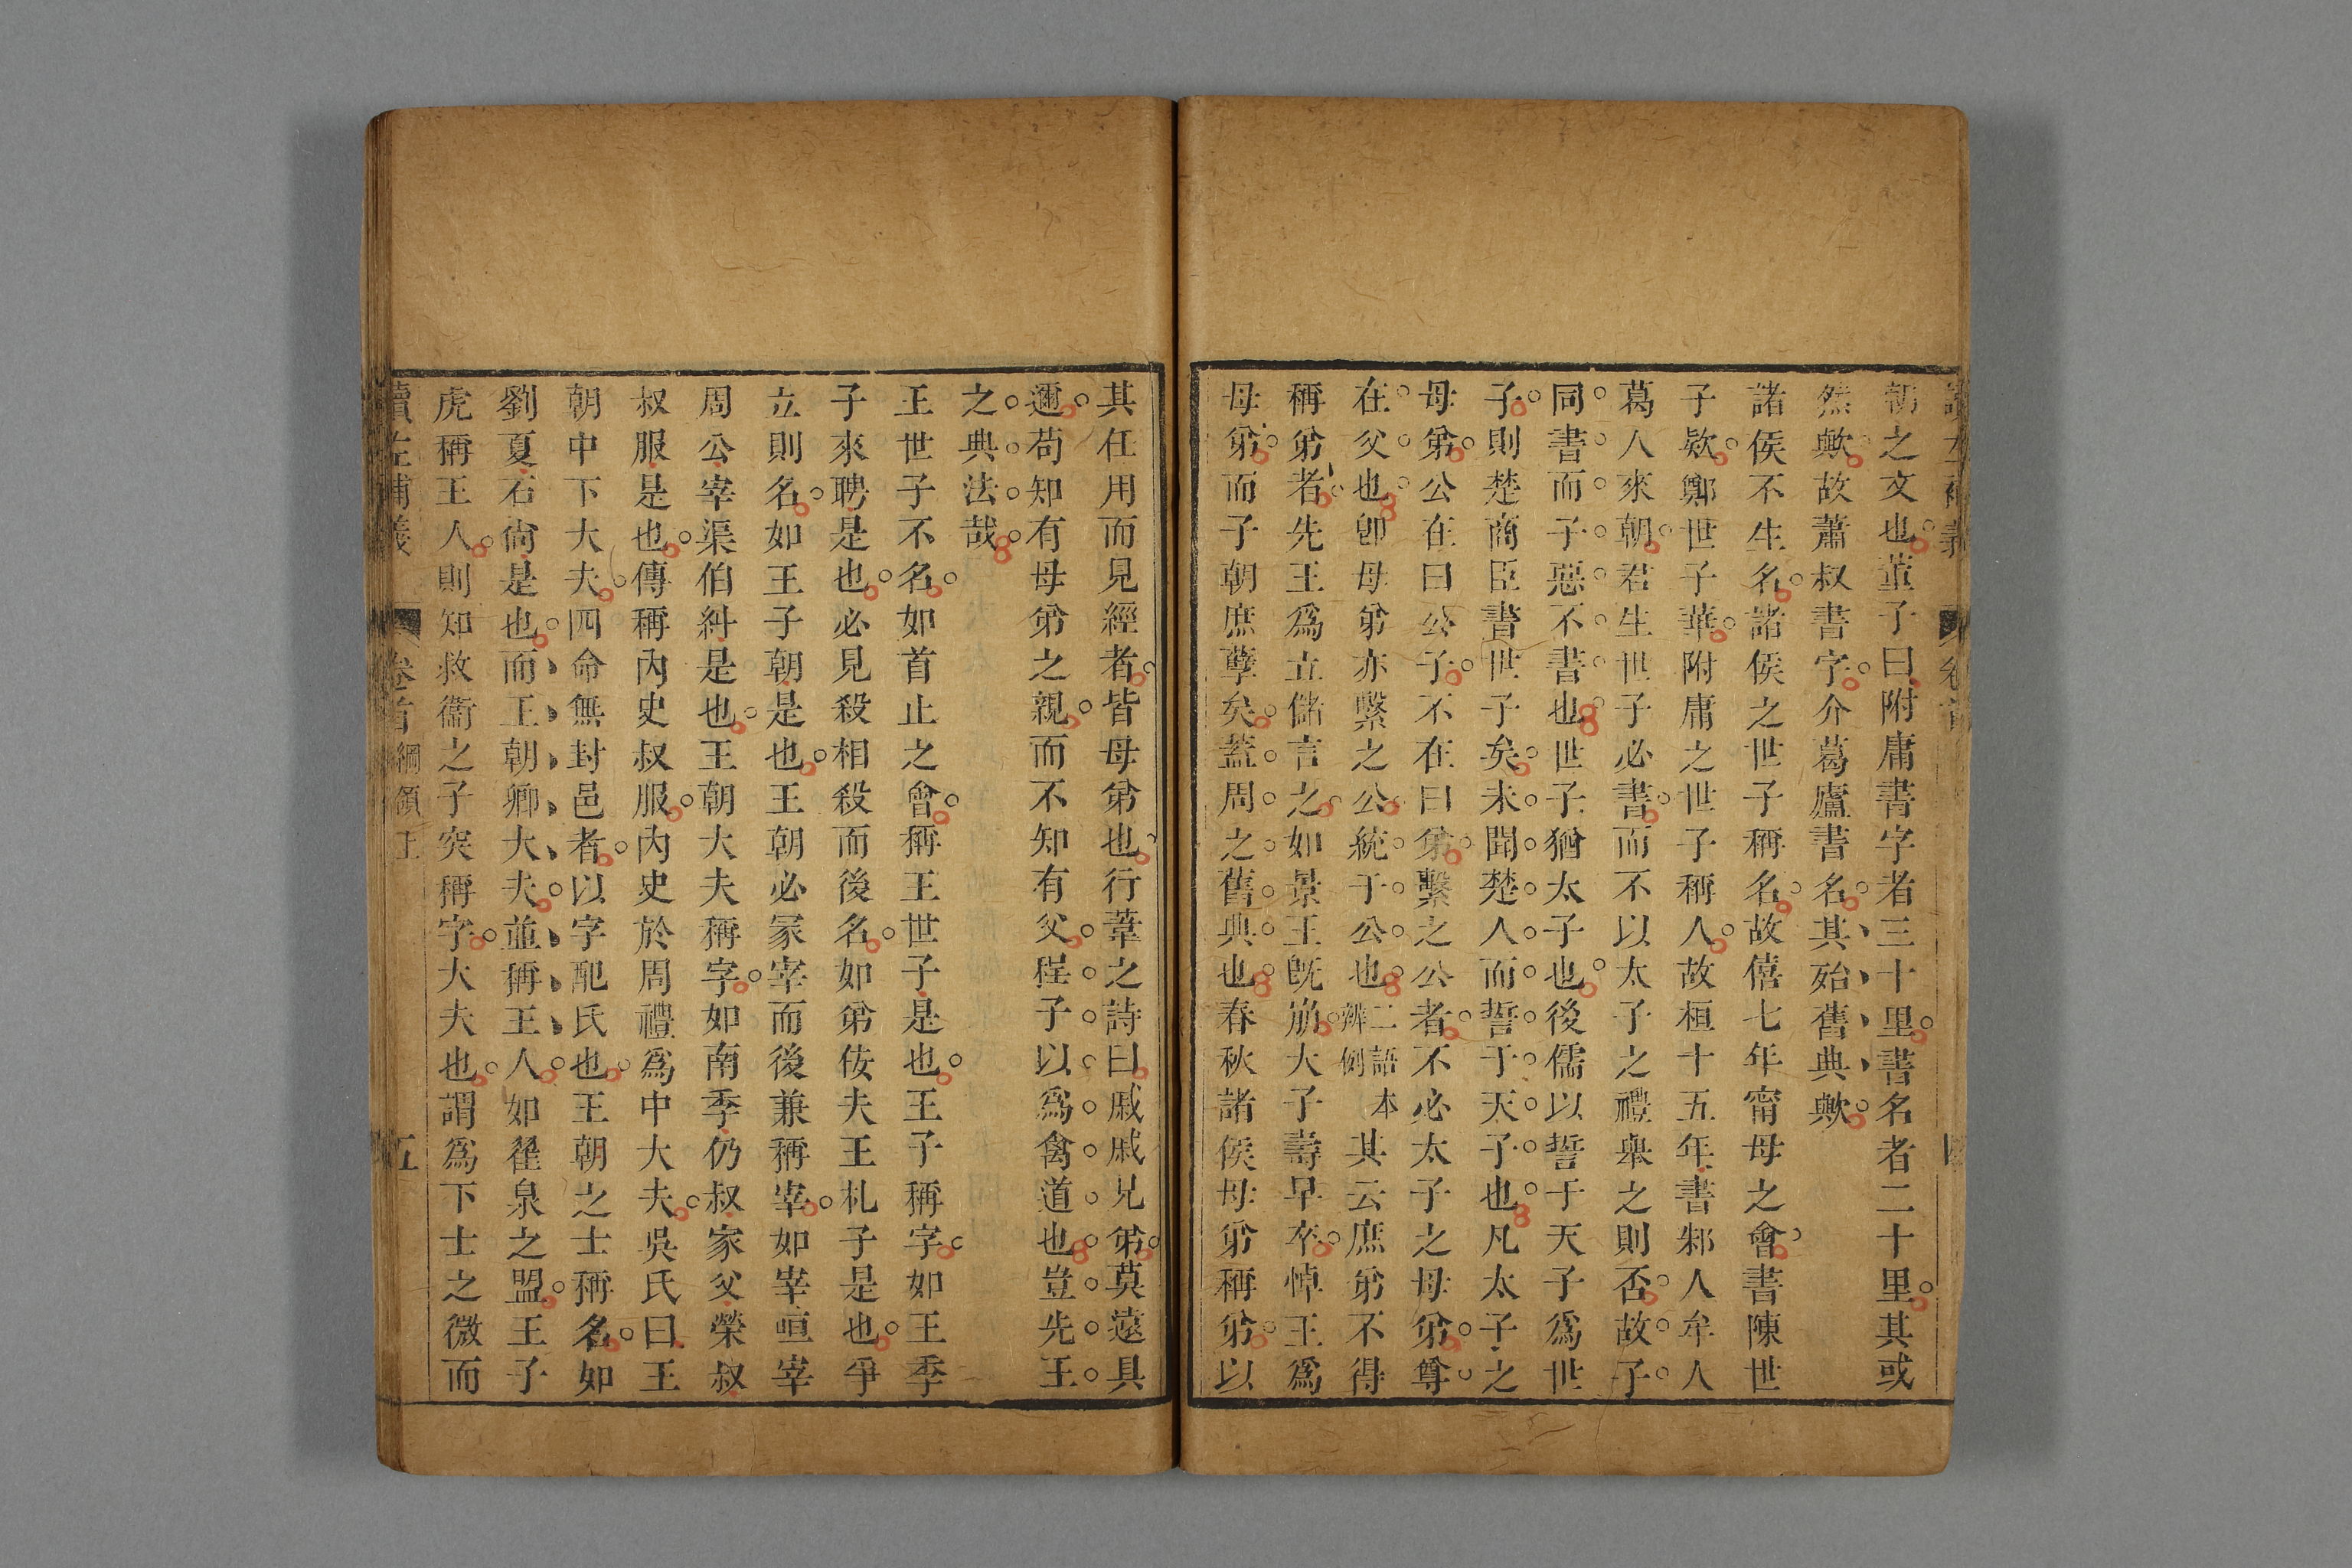 朝之文也董子曰附庸書字者三十里書名者二十里其或
然歟故蕭叔書字介葛廬書名其殆舊典歟
諸侯不生名諸侯之世子稱名故僖七年甯母之會書陳世
子款鄭世子華附庸之世子稱人故桓十五年書邾人牟人
葛人來朝君生世子必書而不以太子之禮舉之則否故子
同書而子惡不書也世子猶太子也後儒以誓于天子爲世
子則楚商臣書世子矣未聞楚人而誓于天子也凡太子之
母弟公在曰公子不在曰弟繫之公者不必太子之母弟尊
在父也卽母弟亦繫之公統于公也二語本辨例其云庶弟不得
稱弟者先王爲立儲言之如景王旣崩大子壽早卒悼王爲
母弟而子朝庶孽矣蓋周之舊典也春秋諸侯母弟稱弟以
其任用而見經者皆母弟也行葦之詩曰戚戚兄弟莫遠具
邇苟知有母弟之親而不知有父程子以爲禽道也豈先王
之典法哉
王世子不名如首止之會稱王世子是也王子稱字如王季
子來聘是也必見殺相殺而後名如弟佞夫王札子是也爭
立則名如王子朝是也王朝必冢宰而後兼稱宰如宰咺宰
周公宰渠伯糾是也王朝大夫稱字如南季仍叔家父榮叔
叔服是也傳稱內史叔服內史於周禮爲中大夫吳氏曰王
朝中下大夫四命無封邑者以字配氏也王朝之士稱名如
劉夏石尙是也而王朝卿大夫並稱王人如翟泉之盟王子
虎稱王人則知救衞之子突稱字大夫也謂爲下士之微而
讀左補義 卷首 綱領上 五